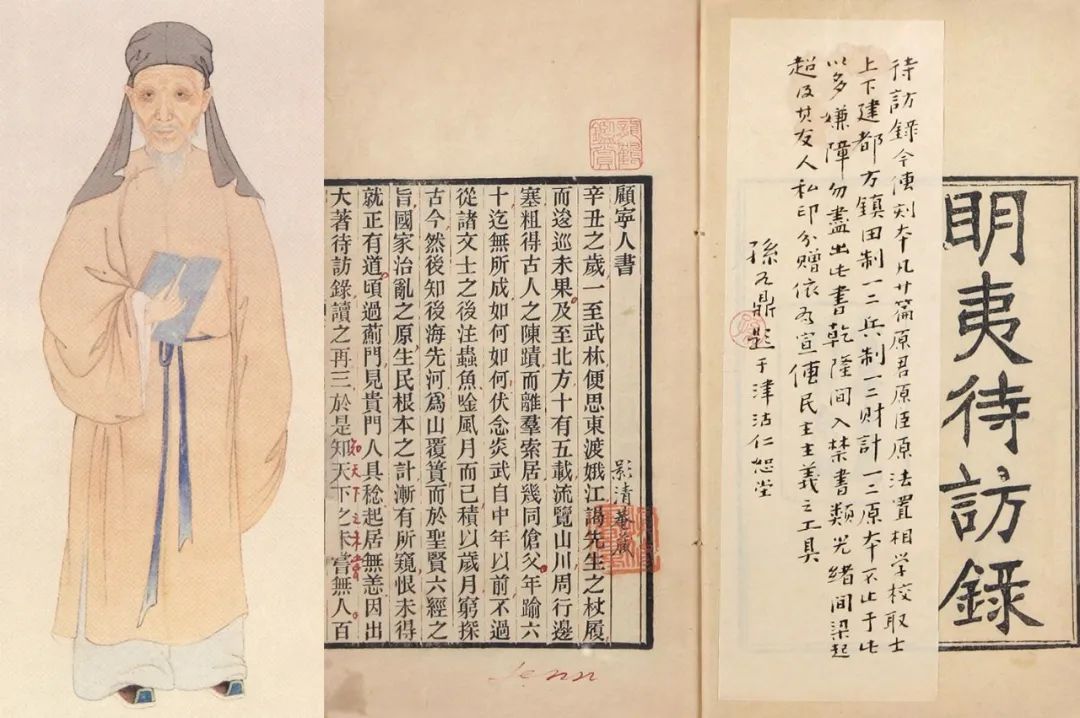 明夷待訪錄
待訪錄今傳刻本凡廿篇原君原臣原法置相学校取士
上下建都方鎮田制一二三兵制一二三财計一二三原本不止于此
以多嫌障勿盡出此書乾隆間入禁書類光緒間梁起
超及其友人私印分赠依为宣傳民主主義之工具
孫九鼎题于津沽仁恕堂
顧寧人書
清菴藏
辛丑之歲一至武林便思東渡娥江謁先生之杖履
而逡巡未果及至北方十有五載流覽山川周行邊
塞粗得古人之陳蹟而離羣索居幾同傖父年踰六
十迄無所成如何如何伏念炎武自中年以前不過
從諸文士之後注蟲魚唫風月而已積以歲月窮探
古今然後知後海先河爲山覆簣而於聖賢六經之
旨國家治亂之原生民根本之計漸有所窺恨未得
就正有道頃過薊門見貴門人具稔起居無恙因出
大著待訪錄讀之再三於是知天下之未嘗無人百
知天下之未嘗